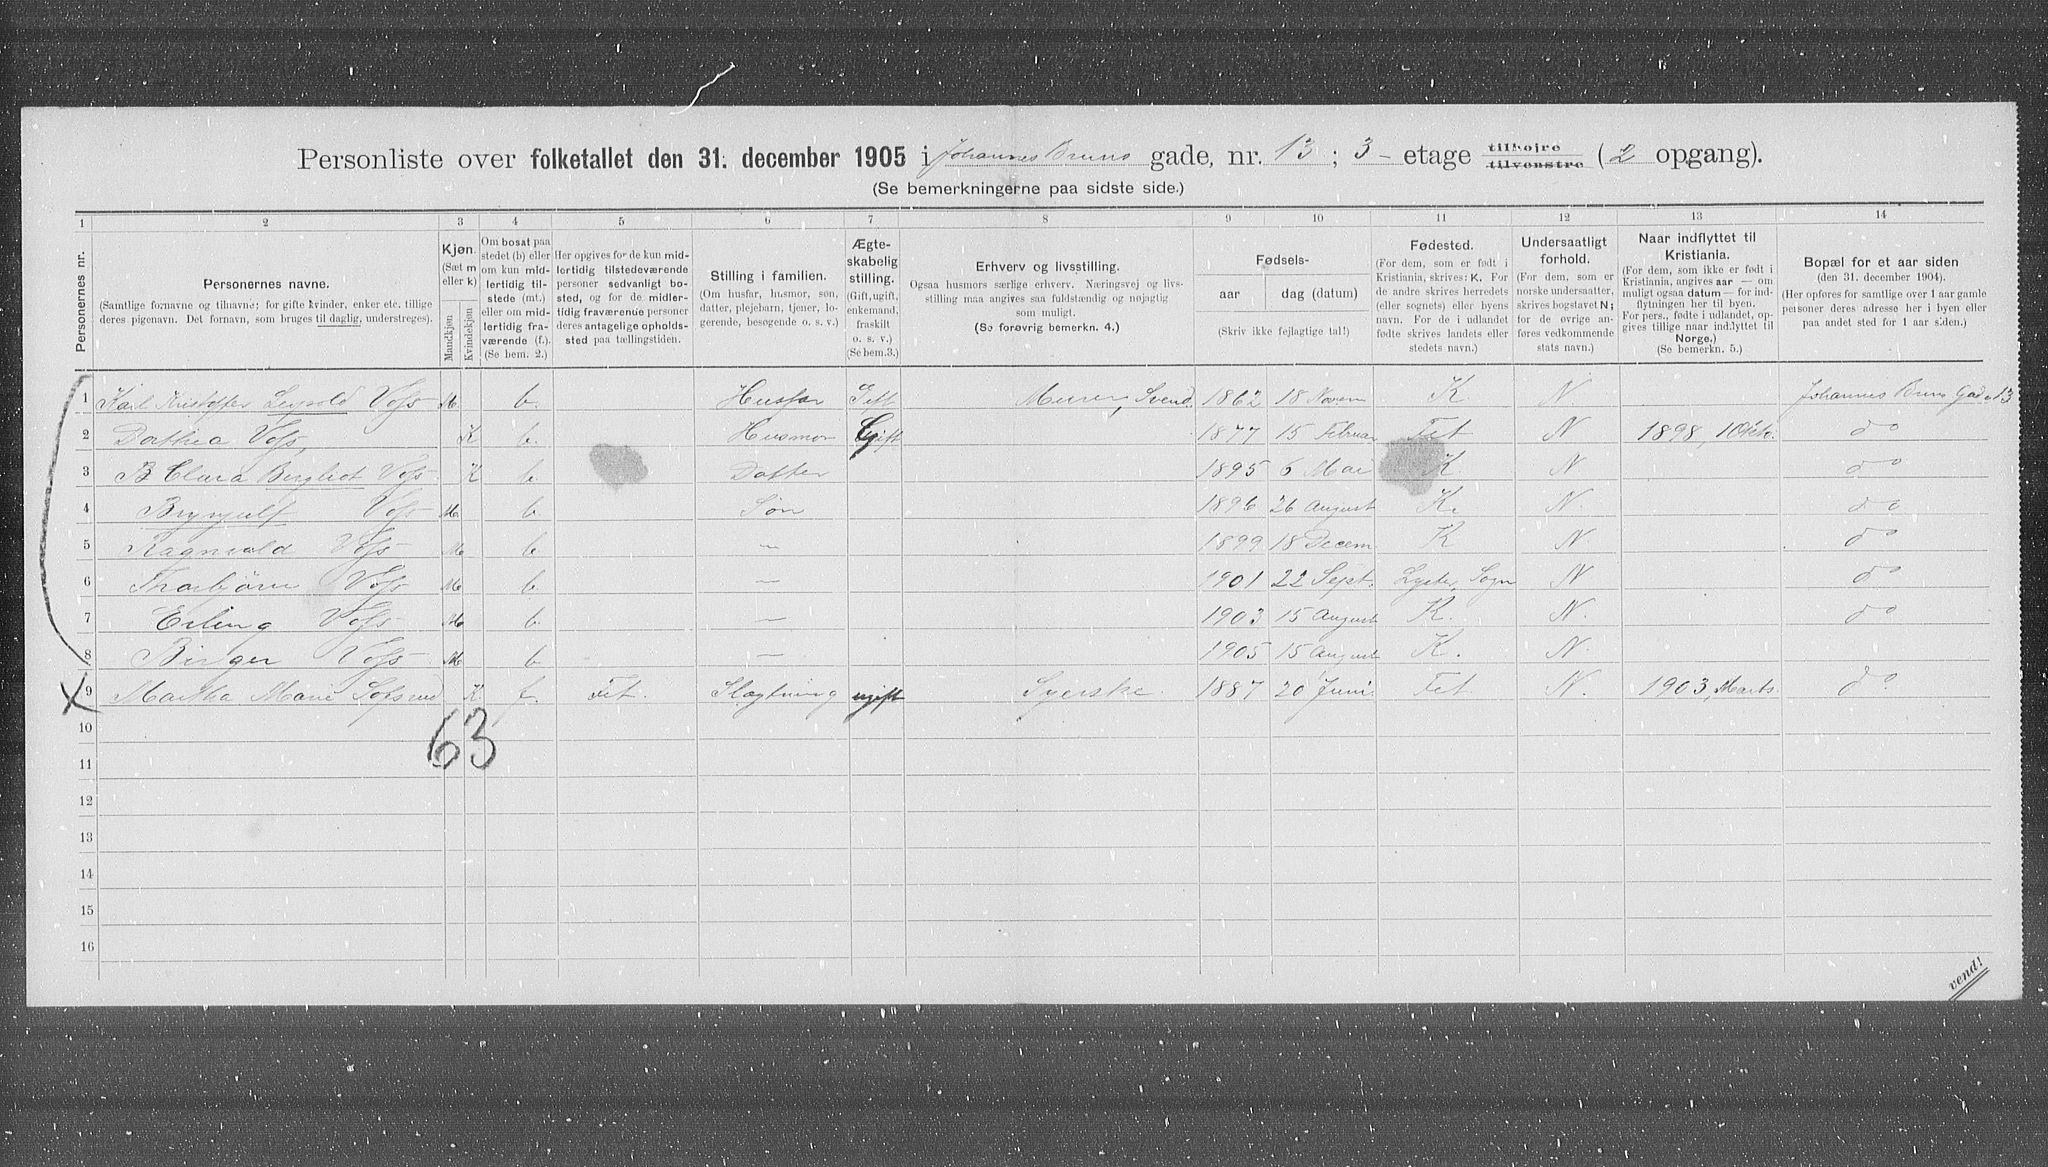 Personliste over folketallet den 31. december 1905 i Johannes Bruns gade, nr. 13 ; 3 - etage tilhøire tilvenstre ( 2 opgang).
(Se bemerkningerne paa sidste side.)
1 2 3 4 5 6 7 8 9 10 11 12 13 14
Personernes nr.
Personernes navne.
(Samtlige fornavne og tilnavne; for gifte kvinder, enker etc. tillige deres pigenavn. Det fornavn, som bruges til daglig, understreges).
Kjøn.
(Sæt m eller k)
Mandkjøn
Kvindekjøn
Om bosat paa stedet (b) eller om kun midlertidig tilstede (mt.) eller om midlertidig fraværende (f.). (Se bem. 2.)
Her opgives for de kun midlertidig tilstedeværende personer sedvanligt bosted, og for de midlertidig fraværende personer deres antagelige opholdssted paa tællingstiden.
Stilling i familien.
(Om husfar, husmor, søn, datter, plejebarn, tjener, logerende, besøgende o. s. v.)
Ægteskabelig stilling.
(Gift, ugift, enkemand, fraskilt o. s. v.) (Se bem. 3.)
Erhverv og livsstilling.
Ogsaa husmors særlige erhverv. Næringsvej og livsstilling maa angives saa fuldstændig og nøjagtig som muligt.
(Se forøvrig bemerkn. 4.)
Fødsels-
aar
dag (datum)
(Skriv ikke fejlagtige tal!)
Fødested.
(For dem, som er født i Kristiania, skrives: K. For de andre skrives herredets (eller sognets) eller byens navn. For de i udlandet fødte skrives landets eller stedets navn.)
Undersaatligt forhold.
(For dem, som er norske undersaatter, skrives bogstavet N; for de øvrige anføres vedkommende stats navn.)
Naar indflyttet til Kristiania.
(For dem, som ikke er født i Kristiania, angives aar — om muligt ogsaa datum — for indflytningen her til byen. For pers., fødte i udlandet, opgives tillige naar indflyttet til Norge.)
(Se bemerkn. 5.)
Bopæl for et aar siden
(den 31. december 1904).
(Her opføres for samtlige over 1 aar gamle personer deres adresse her i byen eller paa andet sted for 1 aar siden.)
1 Karl Kristoffer Leopold Voss M b. Husfar Gift Murer, Svend. 1862 18 Novem K N Johannes Bruns Gade 13
2 Dathea Voss, K b. Husmor Gift 1877 15 Februar Fet N 1898, 1 Okto. do
3 B Clara Bergliot Voss. K b. Datter 1895 6 Mai K N do
4 Brynjulf Voss M b Søn 1896 26 August K. N. do
5 Ragnvald Voss M b — 1899 18 Decem. K N. do
6 Thorbjørn Voss M b. — 1901 22 Sept. Lyster, Sogn N do
7 Erling Voss M b. — 1903 15 August K. N. do
8 Birger Voss M b — 1905 15 August K. N.
X 9 Martha Marie K f. Fet. Slægtning ugift Syerske. 1887 20 Juni. Fet N. 1903, Marts. do.
63
10
11
12
13
14
15
16
vend!